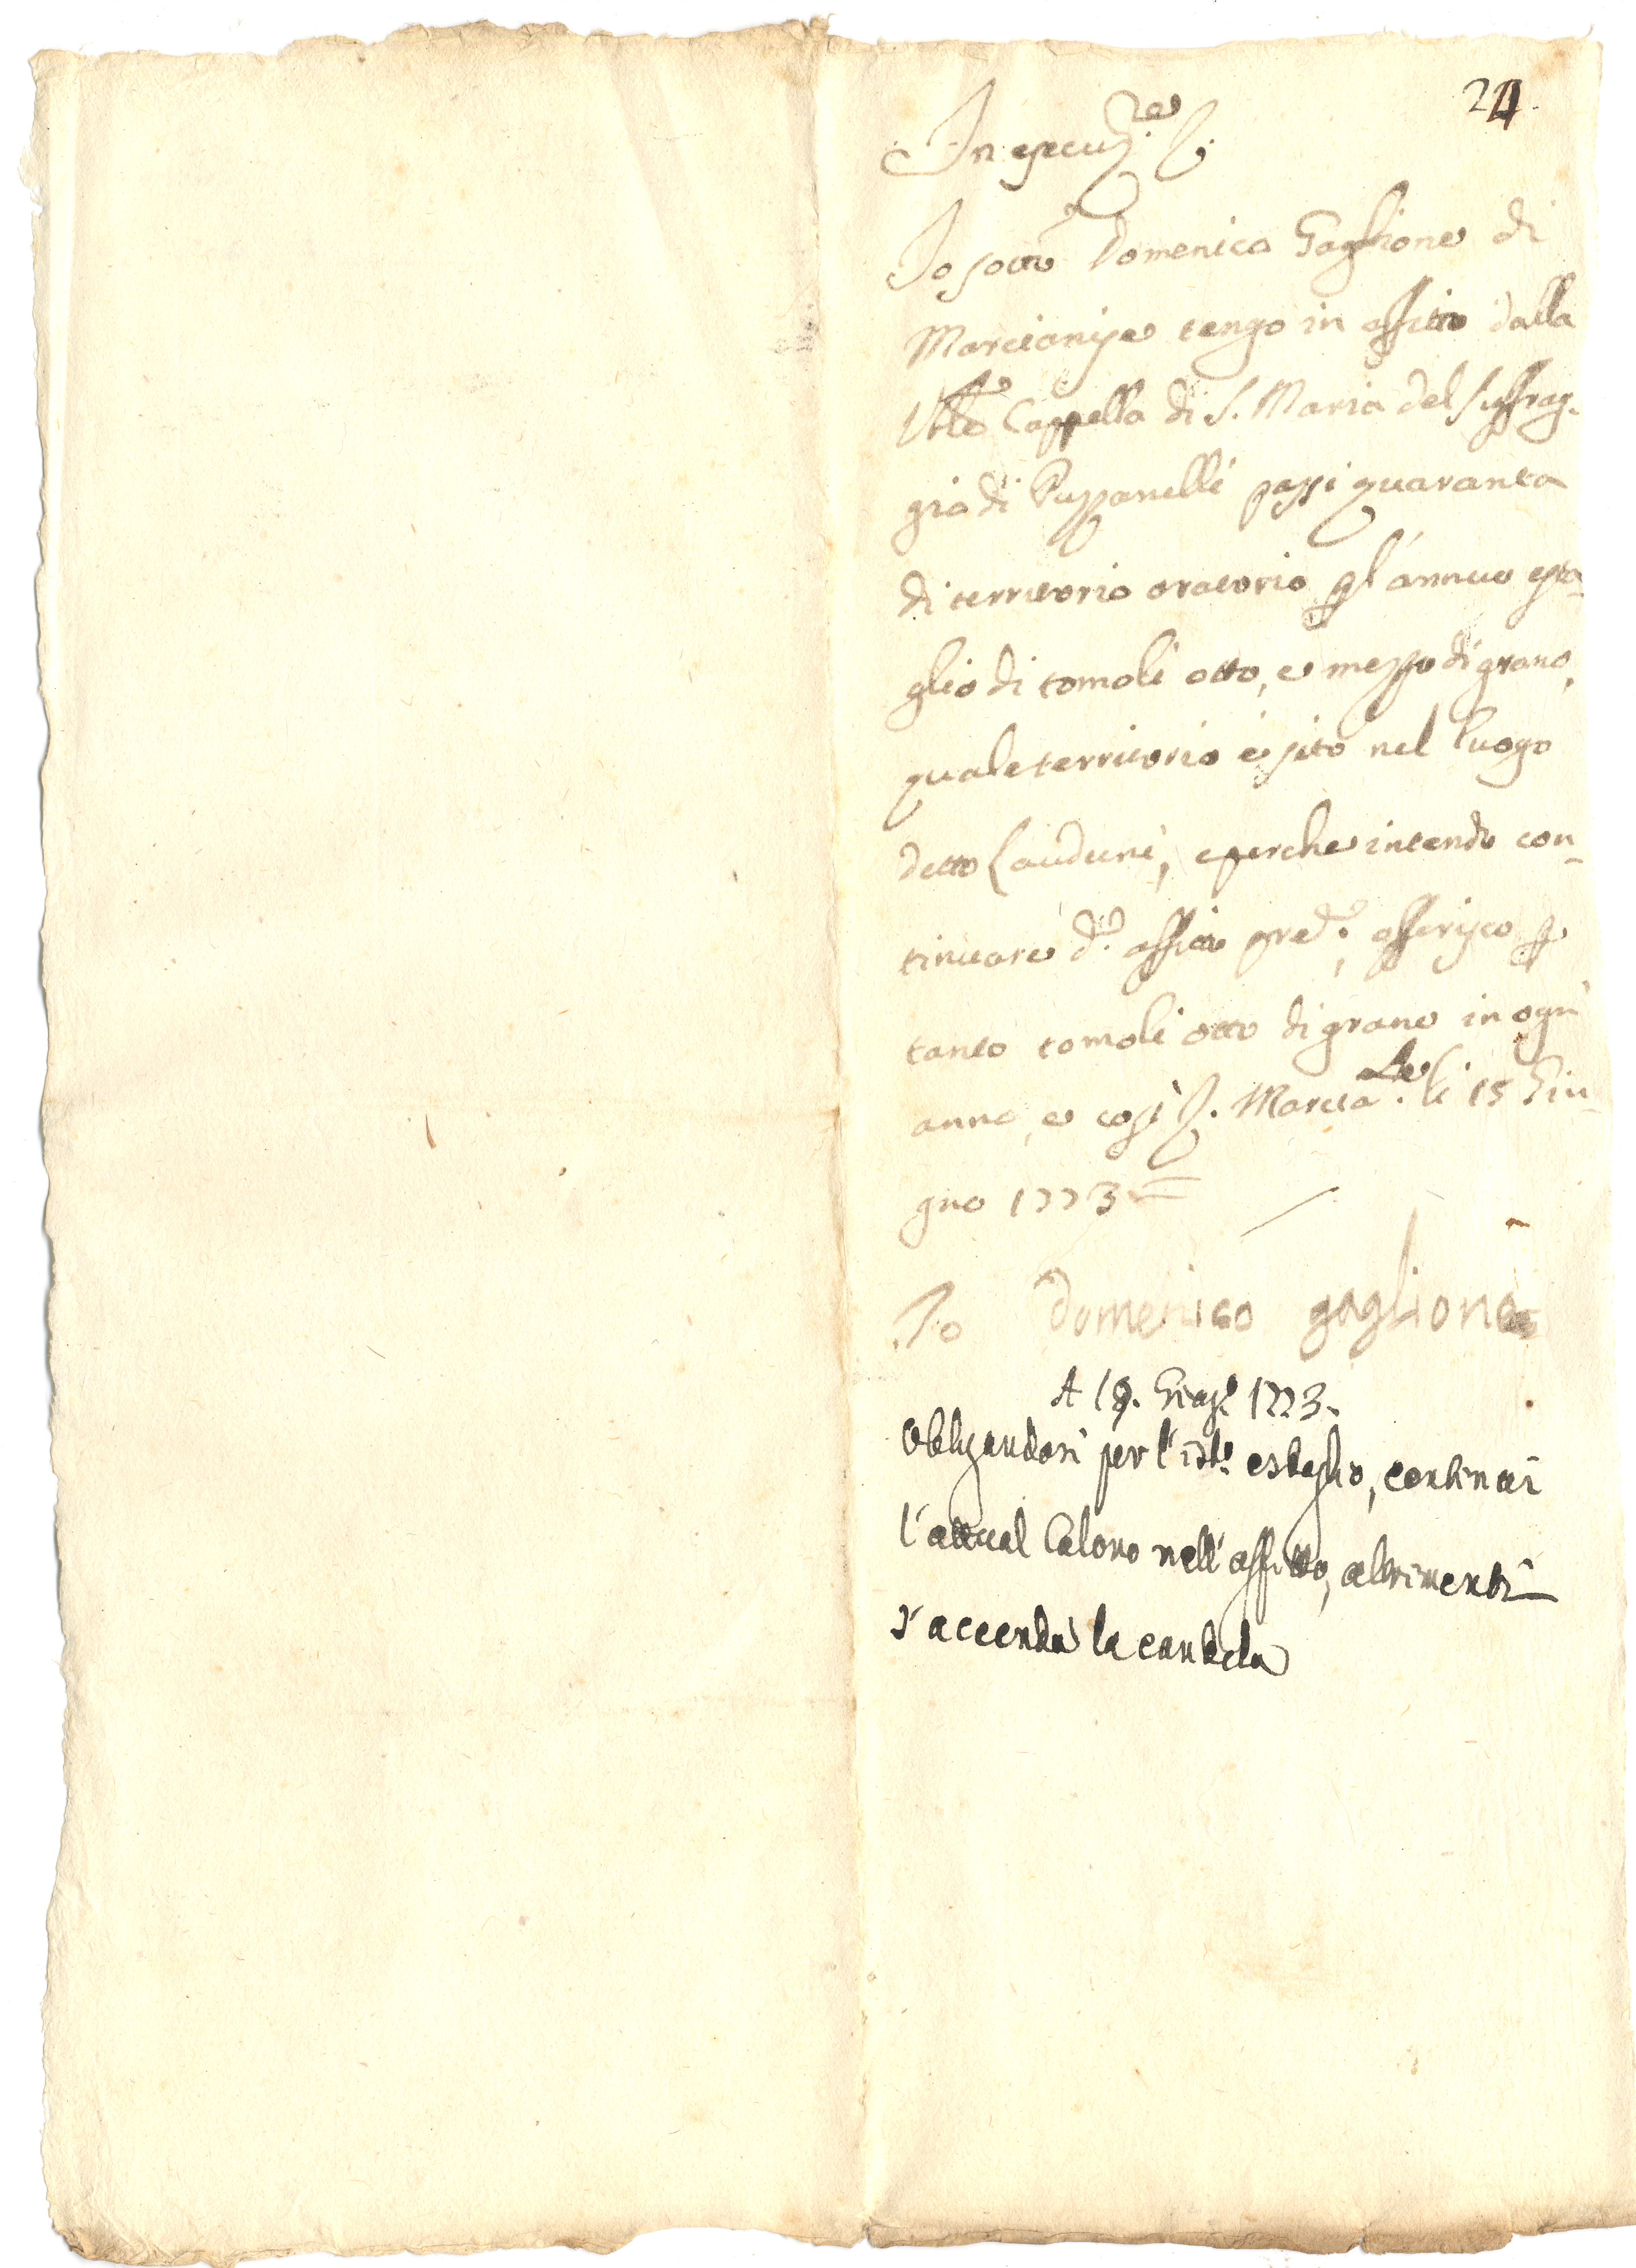 24.
In esecuz.ne &.
Io sotto Domenico Gaglione di
Marcianise tengo in affitto dalla
Cappella di S. Maria del Suffrag-
gio di Puzzanelli passi quaranta
di territorio aratorio p l'annuo esta-
glio di tomoli otto, e mezzo di grano,
quale territorio è sito nel luogo
detto Lauduni, e perche intendo con-
tinuare d.o affitto pred.o, offerisco p
tanto tomoli otto di grano in ogni
anno, e così &. Marcia.se li 15 Giu-
gno 1773 =
Io domenico gaglione
A 19. Giug.o 1773.
Obligandosi per l'ist.o estaglio, continui
l'attual Colono nell'affitto, altrimenti
s'accenda la candela